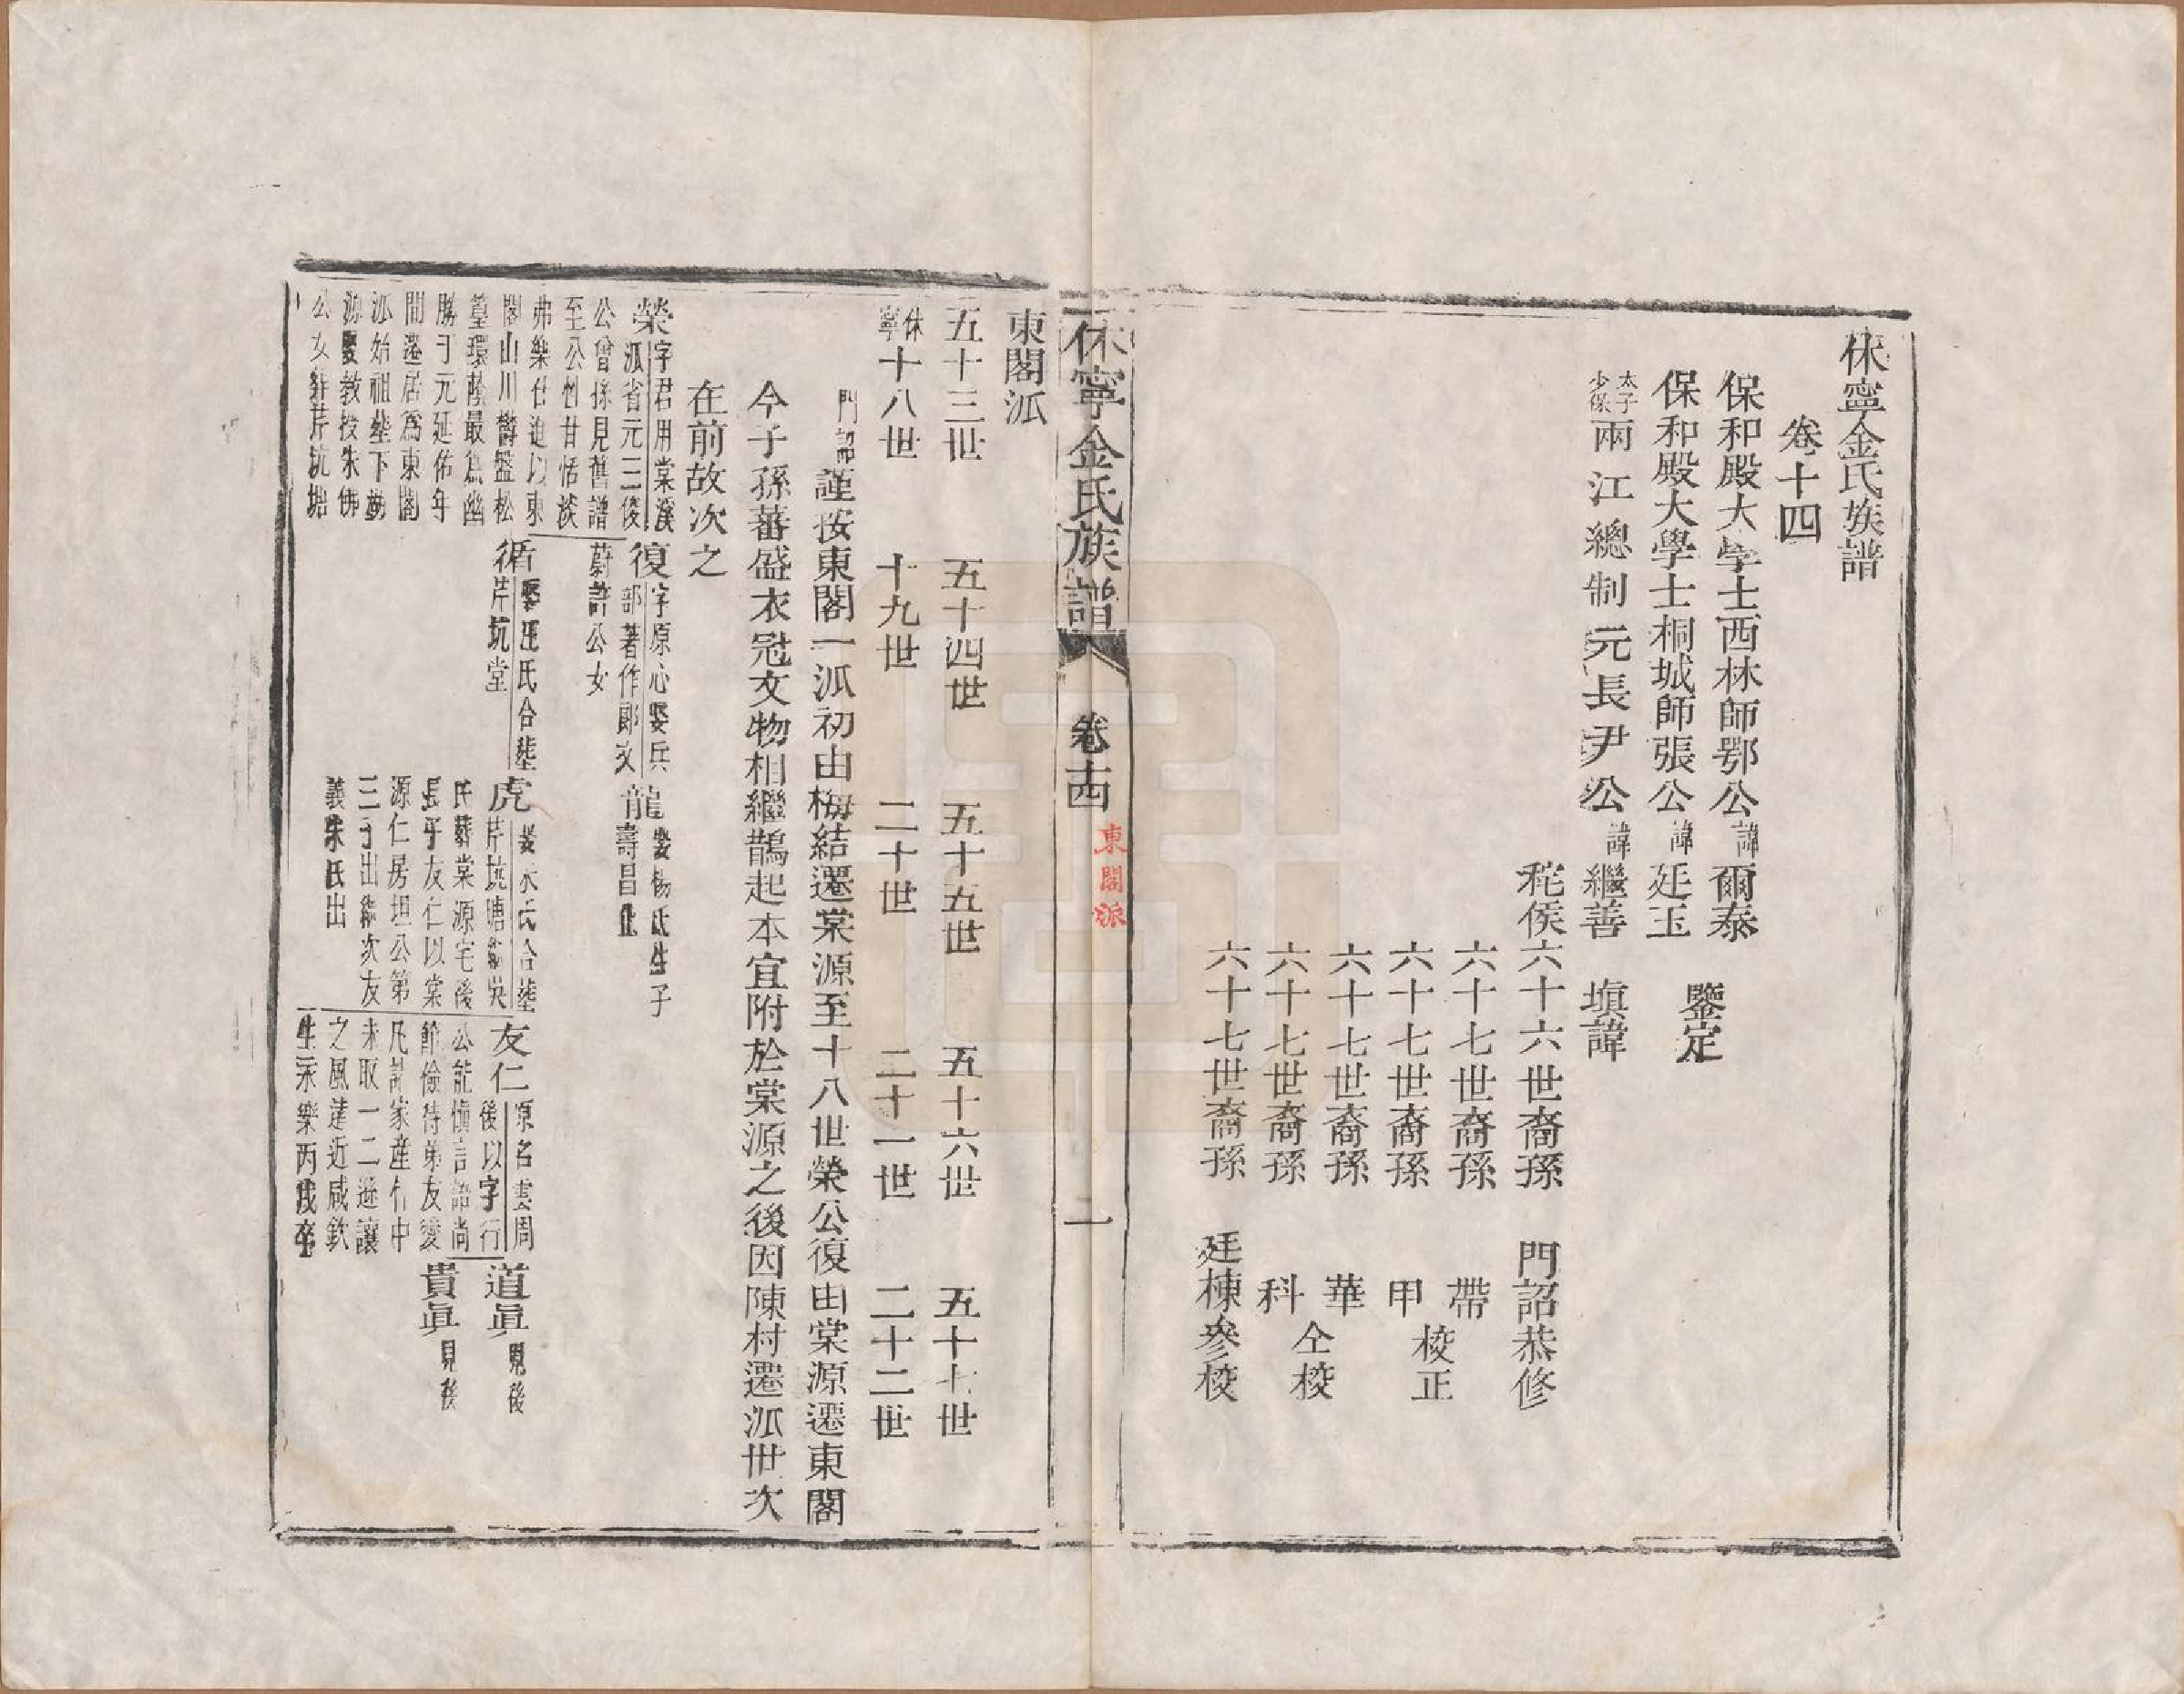 休寧金氏族譜
卷十四
保和殿大學士西林師鄂公諱爾泰
保和殿大學士桐城師張公諱廷玉
鑒定
太子少保兩江總制元長尹公諱繼善 填諱
秺侯六十六世裔孫 門詔恭修
六十七世裔孫 帶
六十七世裔孫 甲
校正
六十七世裔孫 華
六十七世裔孫 科
仝校
六十七世裔孫 廷棟參校
休寧金氏族譜 卷十四 東閣派 二
東閣派
五十三世 五十四世 五十五世 五十六世 五十七世
休寧十八世 十九世 二十世 二十一世 二十二世
門詔謹按東閣一派初由梅結遷棠源至十八世榮公復由棠源遷東閣
今子孫蕃盛衣冠文物相繼鵲起本宜附於棠源之後因陳村遷派世次
在前故次之
榮字君用棠溪
派省元三俊
公曾孫見舊譜
至公性甘恬淡
弗樂仕進以東
閣山川欝盤松
篁環蔭最為幽
勝于元延佑年
間遷居為東閣
派始祖塟下蓈
源娶教授朱佛
公女葬芹坑塘
復字原心娶兵
部著作郎汝
蔚許公女
循娶汪氏合塟
芹坑堂
龍娶楊氏生子
壽昌止
虎娶永氏合塟
芹坑塘繼吳
氏葬棠源宅後
長子友仁以棠
源仁房坦公第
三子出繼次友
義朱氏出
友仁原名雲周
後以字行
公能慎言語尚
節儉待弟友愛
凡計家產什中
未取一二遜讓
之風遠近咸欽
生永樂丙戌卒
道眞見後
貴眞見後